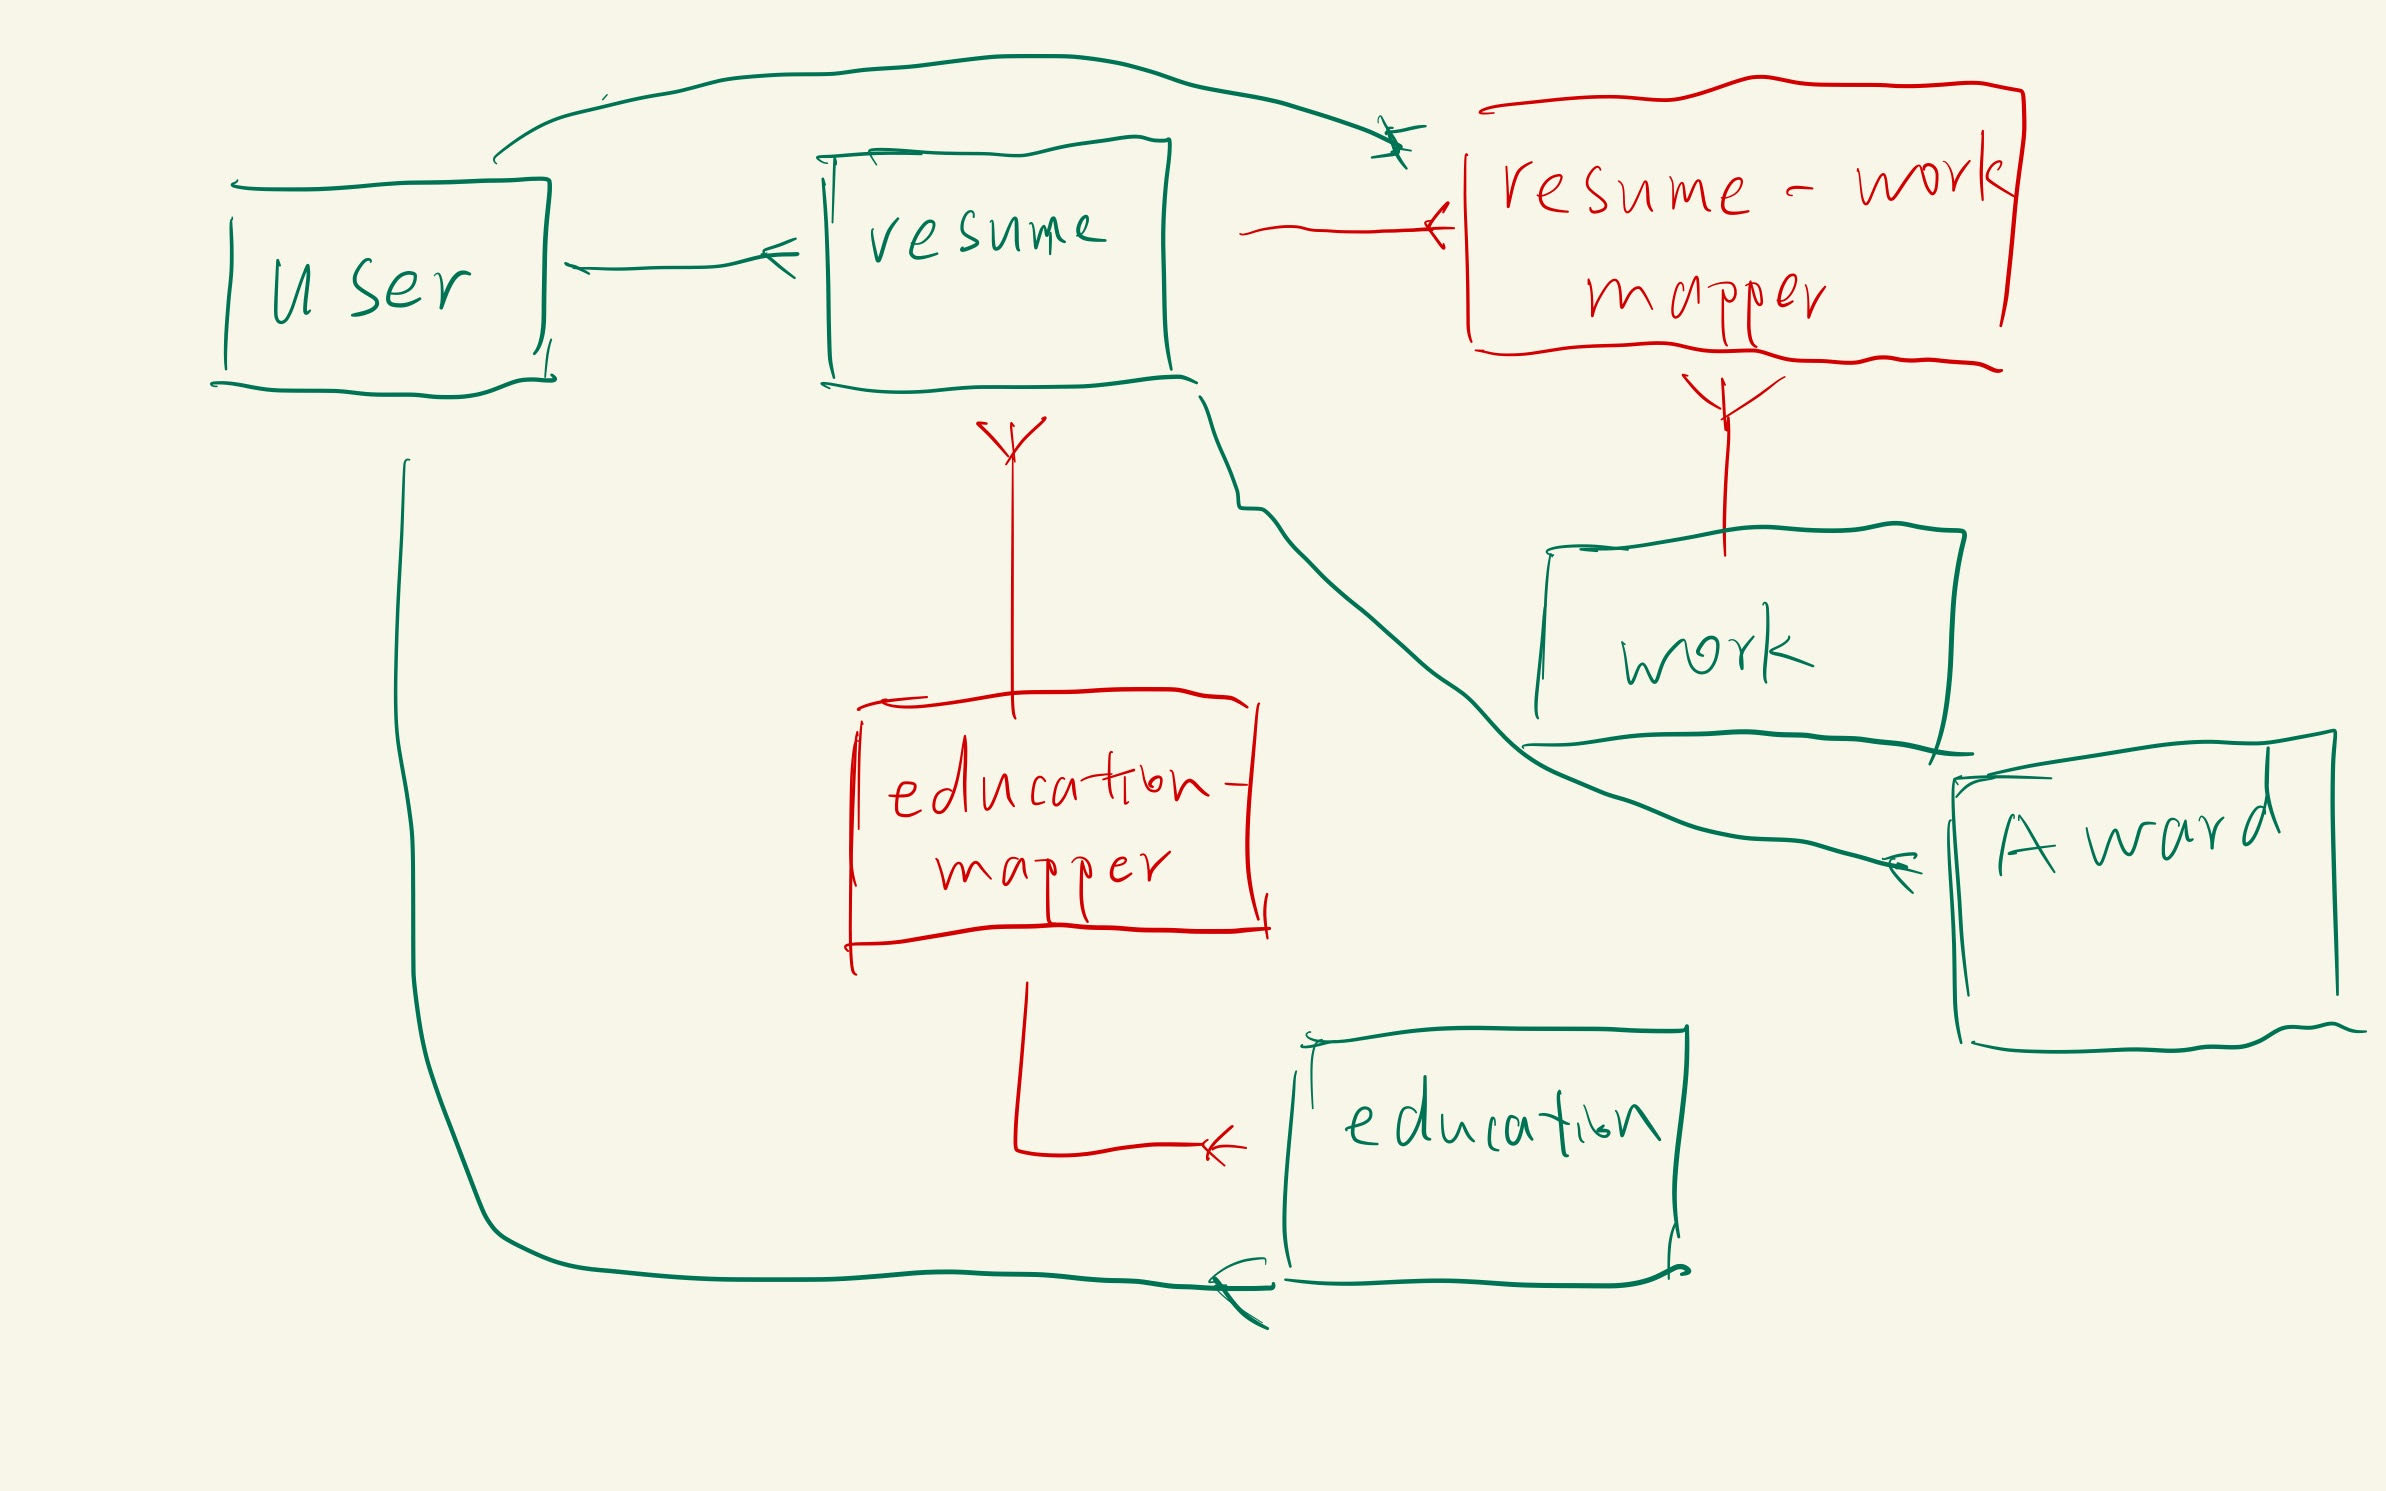 user
resume
resume - work
mapper
work
education-
mapper
Award
education